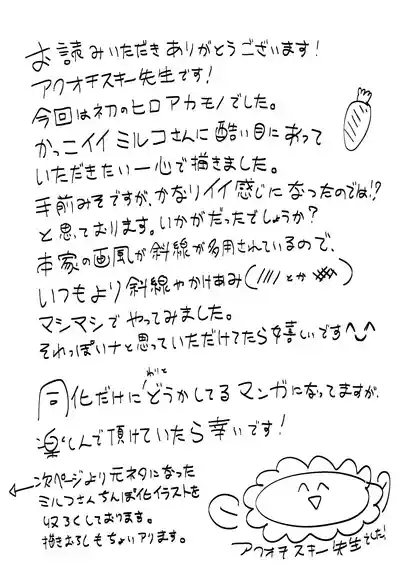 お読みいただきありがとうございます!
アクオチスキー先生です!
今回は初のヒロアカモノでした。
かっこイイミルコさんに酷い目にあって
いただきたい一心で描きました。
手前みそですが、かなりイイ感じになったのでは!?
と思っております。いかがだったでしょうか?
本家の画風が斜線が多用されているので、
いつもより斜線やかけあみ(////とか###)
マシマシでやってみました。
それっぽいナと思っていただけてたら嬉しいです^^
同化だけにわりとどうかしてるマンガになってますが、
楽しんで頂けていたら幸いです!
←次ページより元ネタになった
ミルコさんちんぽ化イラストを
収ろくしております。
描きおろしもちょいアリます。
アクオチスキー先生でした!